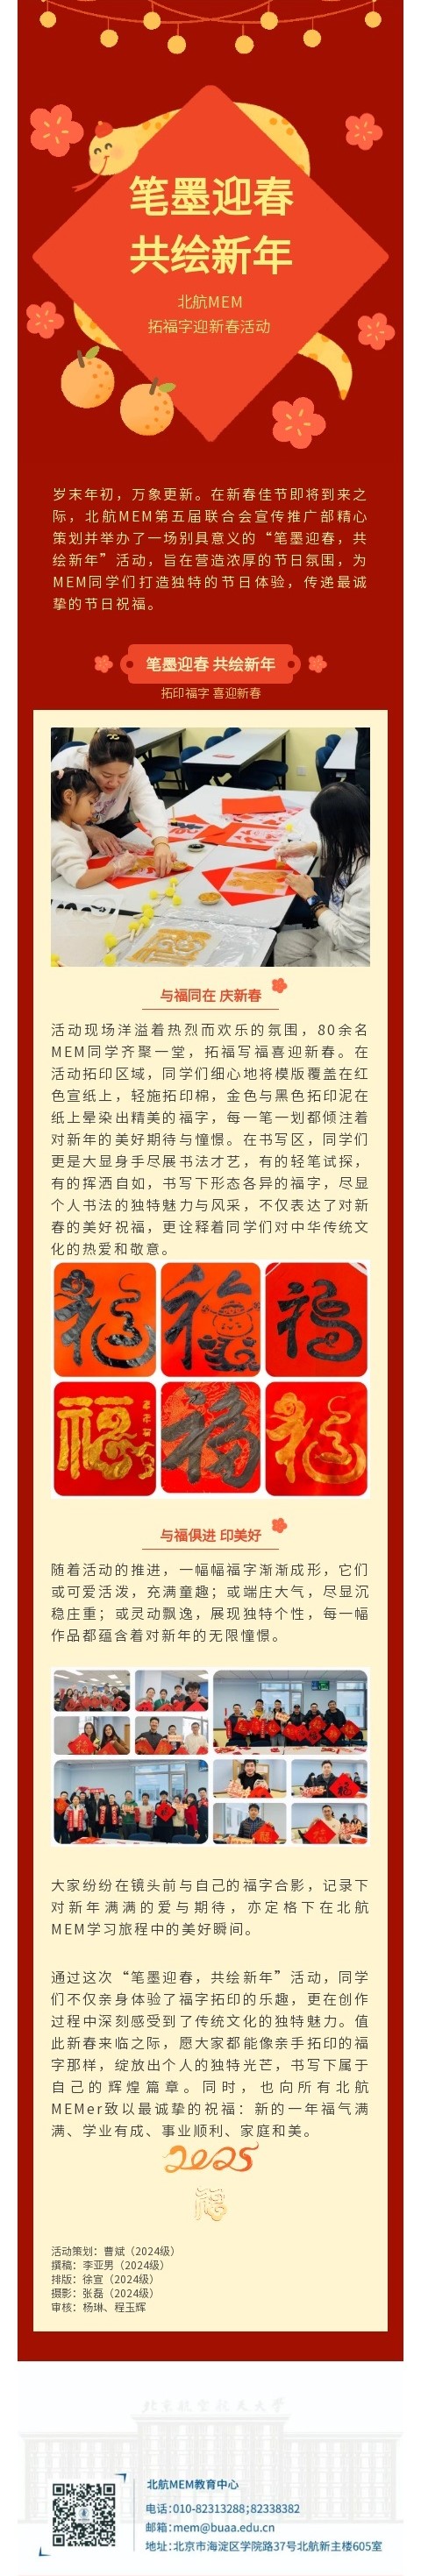 笔墨迎春
共绘新年
北航MEM
拓福字迎新春活动
岁末年初，万象更新。在新春佳节即将到来之
际，北航MEM第五届联合会宣传推广部精心
策划并举办了一场别具意义的“笔墨迎春，共
绘新年”活动，旨在营造浓厚的节日氛围，为
MEM同学们打造独特的节日体验，传递最诚
挚的节日祝福。
笔墨迎春 共绘新年
拓印福字 喜迎新春
与福同在 庆新春
活动现场洋溢着热烈而欢乐的氛围，80余名
MEM同学齐聚一堂，拓福写福喜迎新春。在
活动拓印区域，同学们细心地将模版覆盖在红
色宣纸上，轻施拓印棉，金色与黑色拓印泥在
纸上晕染出精美的福字，每一笔一划都倾注着
对新年的美好期待与憧憬。在书写区，同学们
更是大显身手尽展书法才艺，有的轻笔试探，
有的挥洒自如，书写下形态各异的福字，尽显
个人书法的独特魅力与风采，不仅表达了对新
春的美好祝福，更诠释着同学们对中华传统文
化的热爱和敬意。
福 福 福
福 福 福
与福俱进 印美好
随着活动的推进，一幅幅福字渐渐成形，它们
或可爱活泼，充满童趣；或端庄大气，尽显沉
稳庄重；或灵动飘逸，展现独特个性，每一幅
作品都蕴含着对新年的无限憧憬。
大家纷纷在镜头前与自己的福字合影，记录下
对新年满满的爱与期待，亦定格下在北航
MEM学习旅程中的美好瞬间。
通过这次“笔墨迎春，共绘新年”活动，同学
们不仅亲身体验了福字拓印的乐趣，更在创作
过程中深刻感受到了传统文化的独特魅力。值
此新春来临之际，愿大家都能像亲手拓印的福
字那样，绽放出个人的独特光芒，书写下属于
自己的辉煌篇章。同时，也向所有北航
MEMer致以最诚挚的祝福：新的一年福气满
满、学业有成、事业顺利、家庭和美。
2025
福
活动策划：曹斌（2024级）
撰稿：李亚男（2024级）
排版：徐宣（2024级）
摄影：张磊（2024级）
审核：杨琳、程玉辉
北京航空航天大学
北航MEM教育中心
电话:010-82313288;82338382
邮箱:mem@buaa.edu.cn
地址:北京市海淀区学院路37号北航新主楼605室